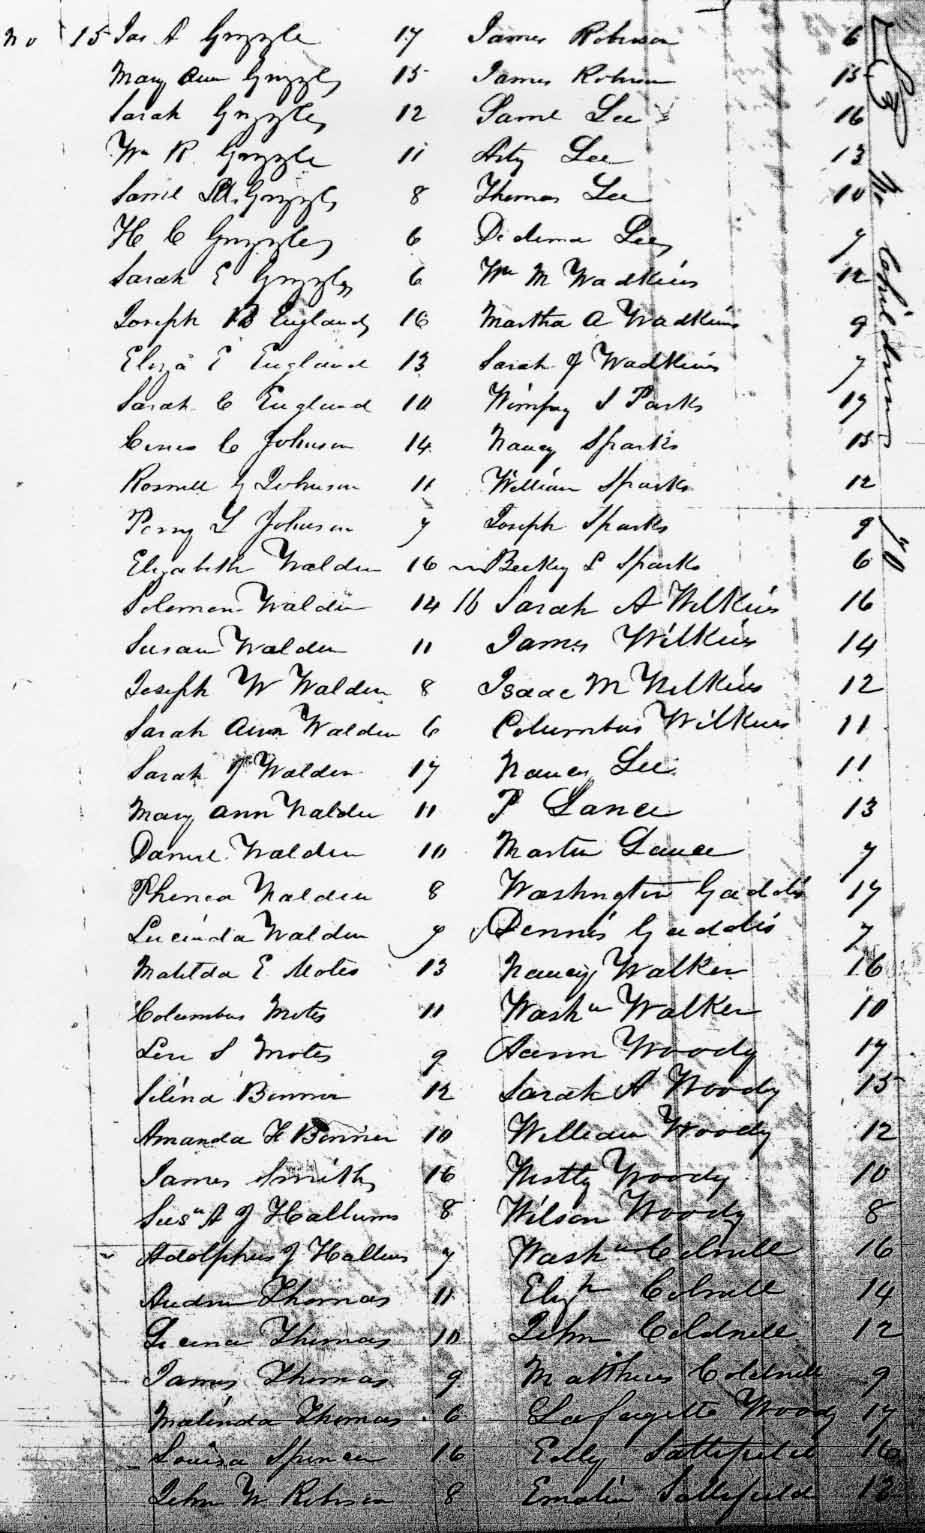 No 15 Jas A Grizzle 17 James Robinson 6
Mary Ann Grizzle 15 James Robinson 15
Sarah Grizzle 12 Saml Lee 16
Wm R. Grizzle 11 Arty Lee 13
Saml M. Grizzle 8 Thomas Lee 10
H C Grizzle 6 Didema Lee 7
Sarah E Grizzle 6 Wm M Wadkins 12
Joseph B England 16 Martha A Wadkins 9
Eliza E England 13 Sarah J Wadkins 7
Sarah C England 10 S Parks 17
C Johnson 14 Nancy Sparks 15
Roswell G Johnson 11 William Sparks 12
Perry L Johnson 7 Joseph Sparks 9
Elizabeth Walden 16 Beckey L Sparks 6
Solomon Walden 14 16 Sarah A Wilkins 16
Susan Walden 11 James Wilkins 14
Joseph W Walden 8 Isaac M Wilkins 12
Sarah Ann Walden 6 Columbus Wilkins 11
Sarah J Walden 17 Nancy Lee 11
Mary Ann Walden 11 P Lance 13
Daniel Walden 10 Martin Lance 7
Walden 8 Washington Gaddis 17
Lucinda Walden 7 Dennis Gaddis 7
Matilda E Motes 13 Nancy Walker 16
Columbus Motes 11 Washn Walker 10
Levi S Motes 9 Aaron Woody 17
Selina Bonner 12 Sarah A Woody 15
Amanda H Bonner 10 William Woody 12
James Smith 16 Woody 10
Susn A J Hallums 8 Wilson Woody 8
Adolphus J Hallums 7 Washn 16
Andrew Thomas 11 Elizh 14
Thomas 10 John 12
James Thomas 9 Matthew 9
Malinda Thomas 6 Lafayette Woody 17
Louisa Spencer 16 Satterfield 16
John W Robison 8 Emaline Satterfield 12
Children
70